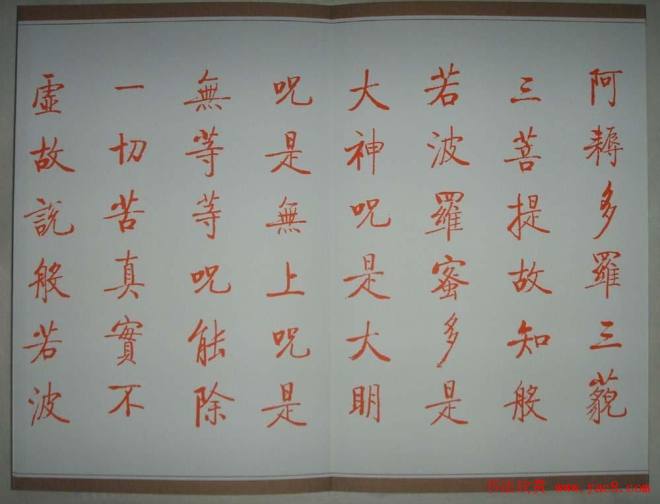 阿耨多羅三藐
三菩提故知般
若波羅蜜多是
大神咒是大明
咒是無上咒是
無等等咒能除
一切苦真實不
虛故說般若波
书法欣赏 www.yac8.com